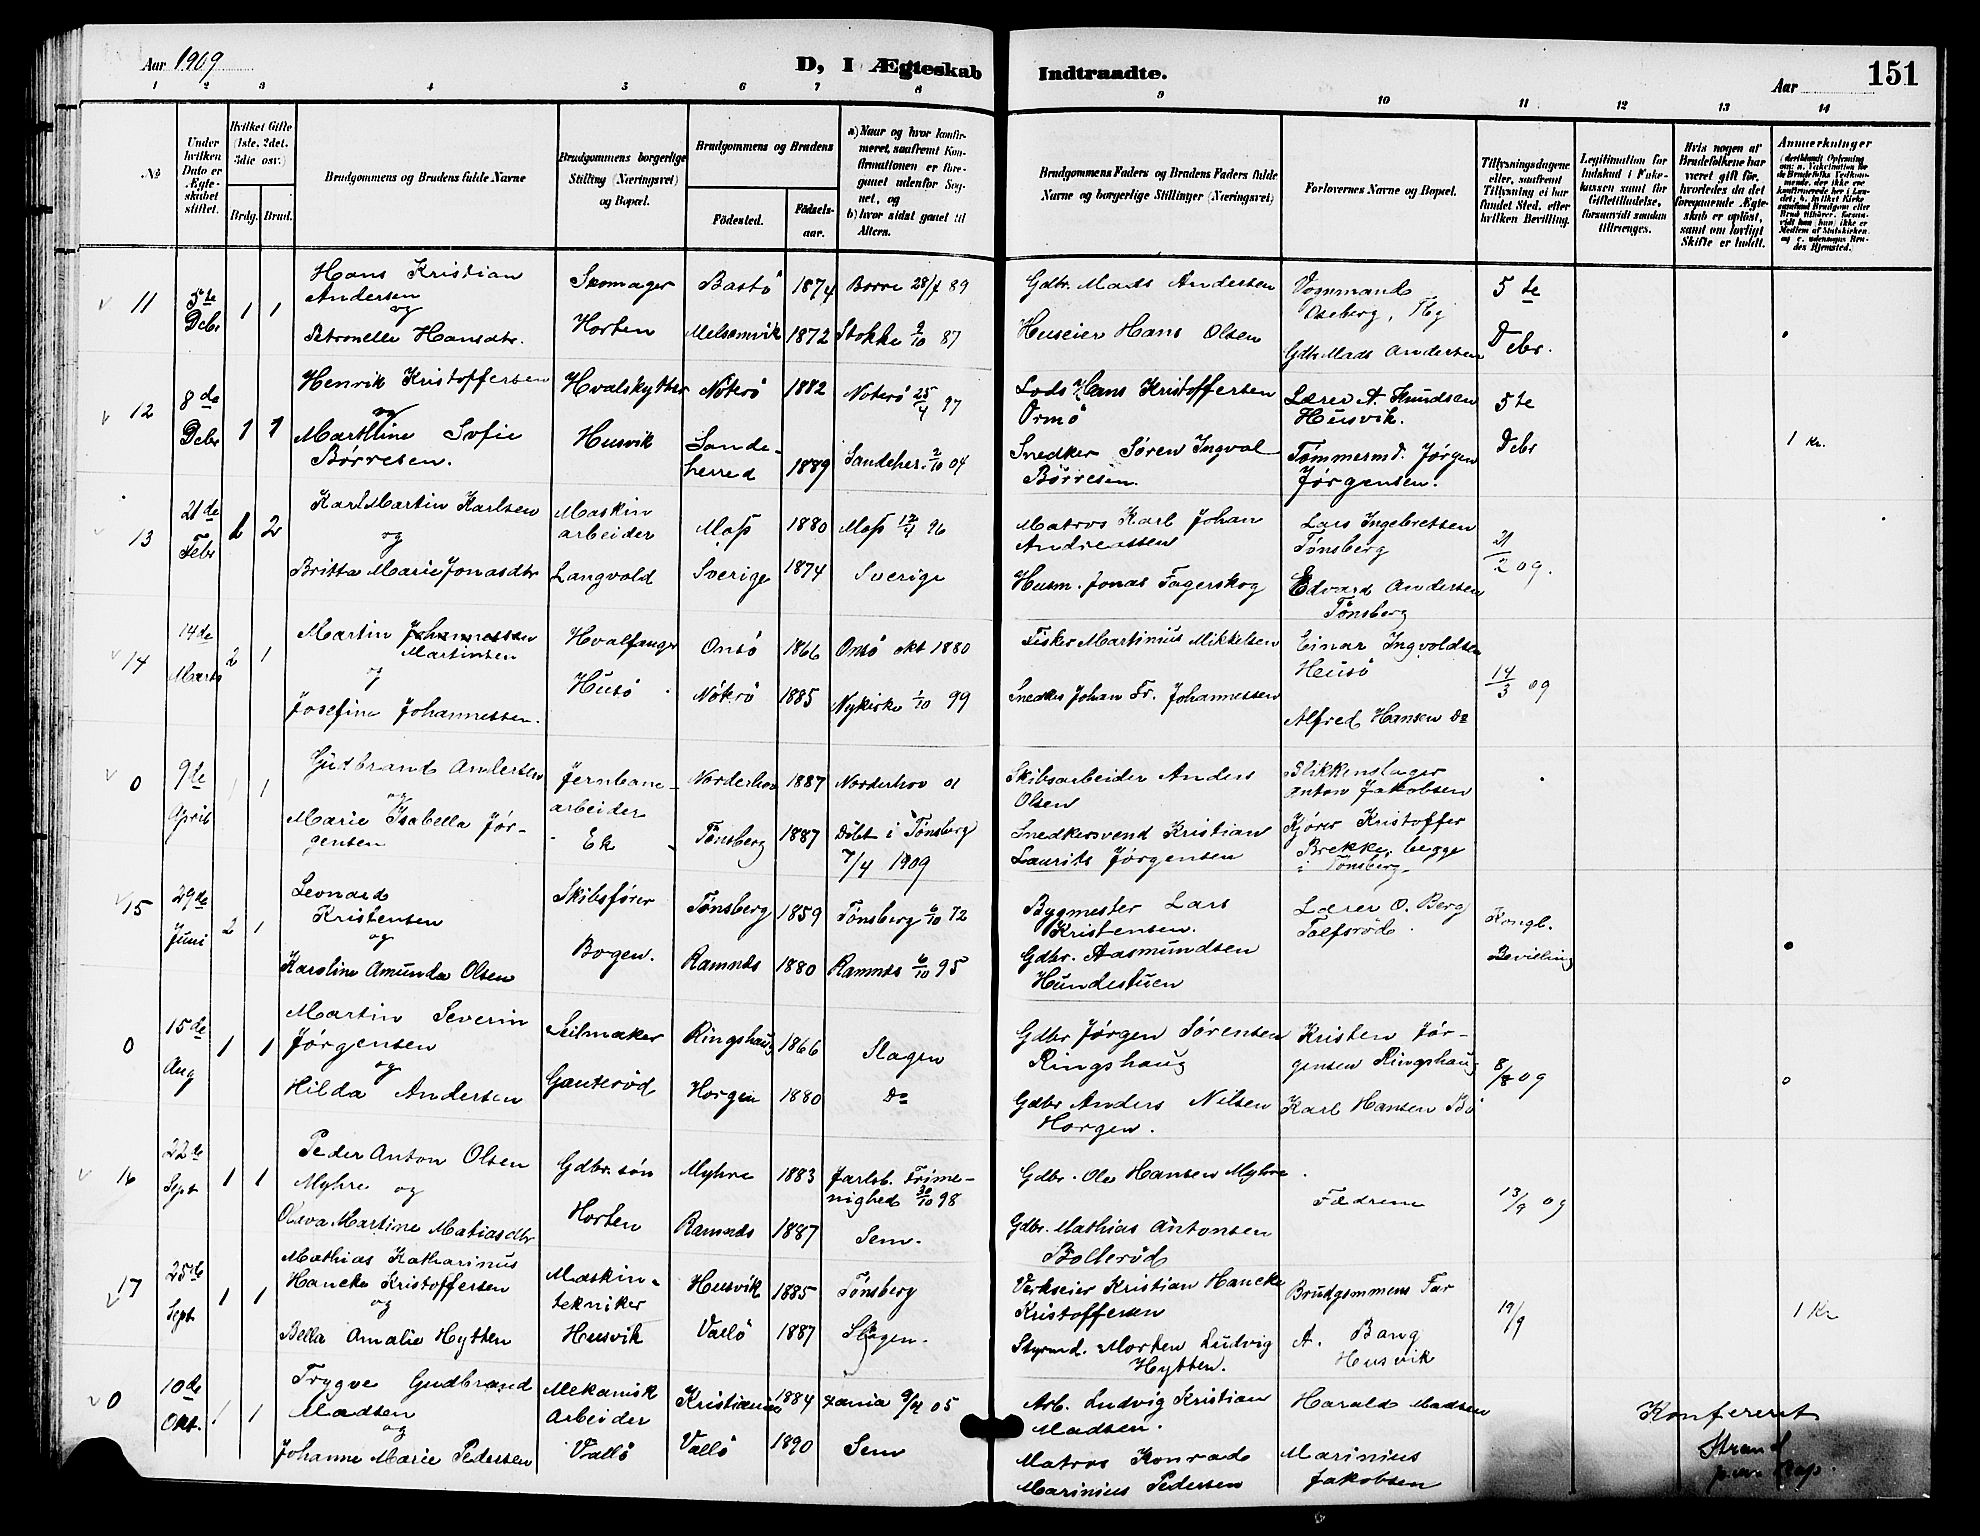 Aar 1909
D, I Ægteskab Indtraadte.
Aar
151
1 2 3 4 5 6 7 8 9 10 11 12 13 14
No
Under hvilken Dato er Ægteskabet stiftet.
Hvilket Gifte (1ste, 2det, 3die osv.)
Brdg. Brud.
Brudgommens og Brudens fulde Navne
Brudgommens borgerlige Stilling (Næringsvei) og Bopæl.
Brudgommens og Brudens
Fødested.
Fødselsaar.
a) Naar og hvor konfirmeret, saafremt Konfirmationen er foregaaet udenfor Sognet, og
b) hvor sidst gaaet til Alters.
Brudgommens Faders og Brudens Faders fulde Navne og borgerlige Stillinger (Næringsvei)
Forlovernes Navne og Bopæl.
Tillysningsdagene eller, saafremt Tillysning ei har fundet Sted, efter hvilken Bevilling.
Legitimation for Indskud i Enkekassen samt for Giftetilladelse, forsaavidt saadan tiltrænges.
Hvis nogen af Brudefolkene har været gift før, hvorledes da det foregaaende Ægteskab er opløst, samt om lovligt Skifte er holdt.
Anmerkninger
11 5te Debr 1 1
Hans Kristian
Andersen
og
Petronelle Hansdtr.
Skomager
Horten
Bastö 1874 Borre 28/7 89
Melsomvik 1872 Stokke 2/10 87
Gdbr. Mads Andersen
Huseier Hans Olsen
Oseberg, Tbg
Gdbr Mads Andersen
5te
Debr.
12 8de Debr 1 1
Henrik Kristoffersen
og
Marthine Sofie
Börresen.
Hvalskytter
Husvik
Nøterö 1882 Noterö 25/4 97
Sandeherred 1889 Sandeher. 2/10 04
Lods Hans Kristoffersen
Ormö
Snedker Søren Ingval
Börresen.
Lærer A. Knudsen
Husvik.
Tømmermd. Jørgen
Jørgensen.
5te
Debr
1 Kr.
13 21de Febr 1 2
Karl Martin Karlsen
og
Britta Marie Jonasdtr
Maskin
arbeider
Langvold
Moss 1880 Moss 12/4 96
Sverige 1874 Sverige
Matros Karl Johan
Andreassen
Husm. Jonas Fagerskog
Lars Ingebretsen
Tønsberg
Edvard Andersen
Tønsberg
21/2 09.
14 14de Marts 2 1
Martin Johannessen
Martinsen
og
Josefine Johannessen.
Hvalfanger
Husö
Onsö 1866 Onsö okt 1880
Nøterö 1885 Nykirke 1/10 99
Fisker Martinius Mikkelsen
Snedker Johan Fr. Johannessen
Einar Ingvoldsen
Husö
Alfred Hansen Do
14/3 09
0 9de April 1 1
Gudbrand Andersen
og
Marie Isabella Jør-
gensen
Jernbane-
arbeider
Ek
Norderhov 1887 Norderhov 01
Tønsberg 1887 Døbt i Tønsberg
7/4 1909
Skibsarbeider Anders
Olsen
Snedkersvend Kristian
Laurits Jørgensen
Blikkenslager
Anton Jakobsen
Kjører Kristoffer
Brekke, begge
i Tønsberg.
15 29de Juni 2 1
Leonard
Kristensen
og
Karoline Amunda Olsen
Skibsfører
Bogen.
Tønsberg 1859 Tønsberg 6/10 72
Ramnes 1880 Ramnes 6/10 95
Bygmester Lars
Kristensen.
Gdbr. Aasmundsen
Hundestuen
Lærer O. Berg
Tolfsrød.
Kongl.
Bevilling
0 15de Aug 1 1
Martin Severin
Jørgensen
og
Hilda Andersen
Seilmaker
Gauterød
Ringshaug 1866 Slagen
Horgen 1880 Do
Gdbr Jørgen Sørensen
Ringshaug
Gdbr Anders Nilsen
Horgen.
Kristen Jør-
gensen Ringshaug
Karl Hansen Bö
8/8 09
16 22de Sept 1 1
Peder Anton Olsen
Myhre og
Olava Martine Matiasdtr
Gdbr. søn
Horten
Myhre 1883 Jarlsb. Frime-
nighed 30/10 98
Ramnes 1887 Sem.
Gdbr. Ole Hansen Myhre
Gdbr. Mathias Antonsen
Bollerød
Fædrene
13/9 09
17 25de Sept 1 1
Mathias Katharinus
Hancke Kristoffersen
og
Bella Amalie Hytten
Maskin-
tekniker
Husvik
Husvik 1885 Tønsberg
Vallö 1887 Slagen.
Verkseier Kristian Hancke
Kristoffersen
Styrmd. Morten Ludvig
Hytten.
Brudgommens Far
A. Bang
Husvik
19/9
1 Kr
0 10de Okt. 1 1
Trygve Gudbrand
Madsen
og
Johanne Marie Pedersen
Mekanisk
Arbeider
Vallö
Kristiania 1884 Xania 9/4 05
Vallö 1890 Sem
Arb. Ludvig Kristian
Madsen.
Matros Konrad
Marinius Pedersen
Harald Madsen
Marinius
Jakobsen
Konfereret
Strand